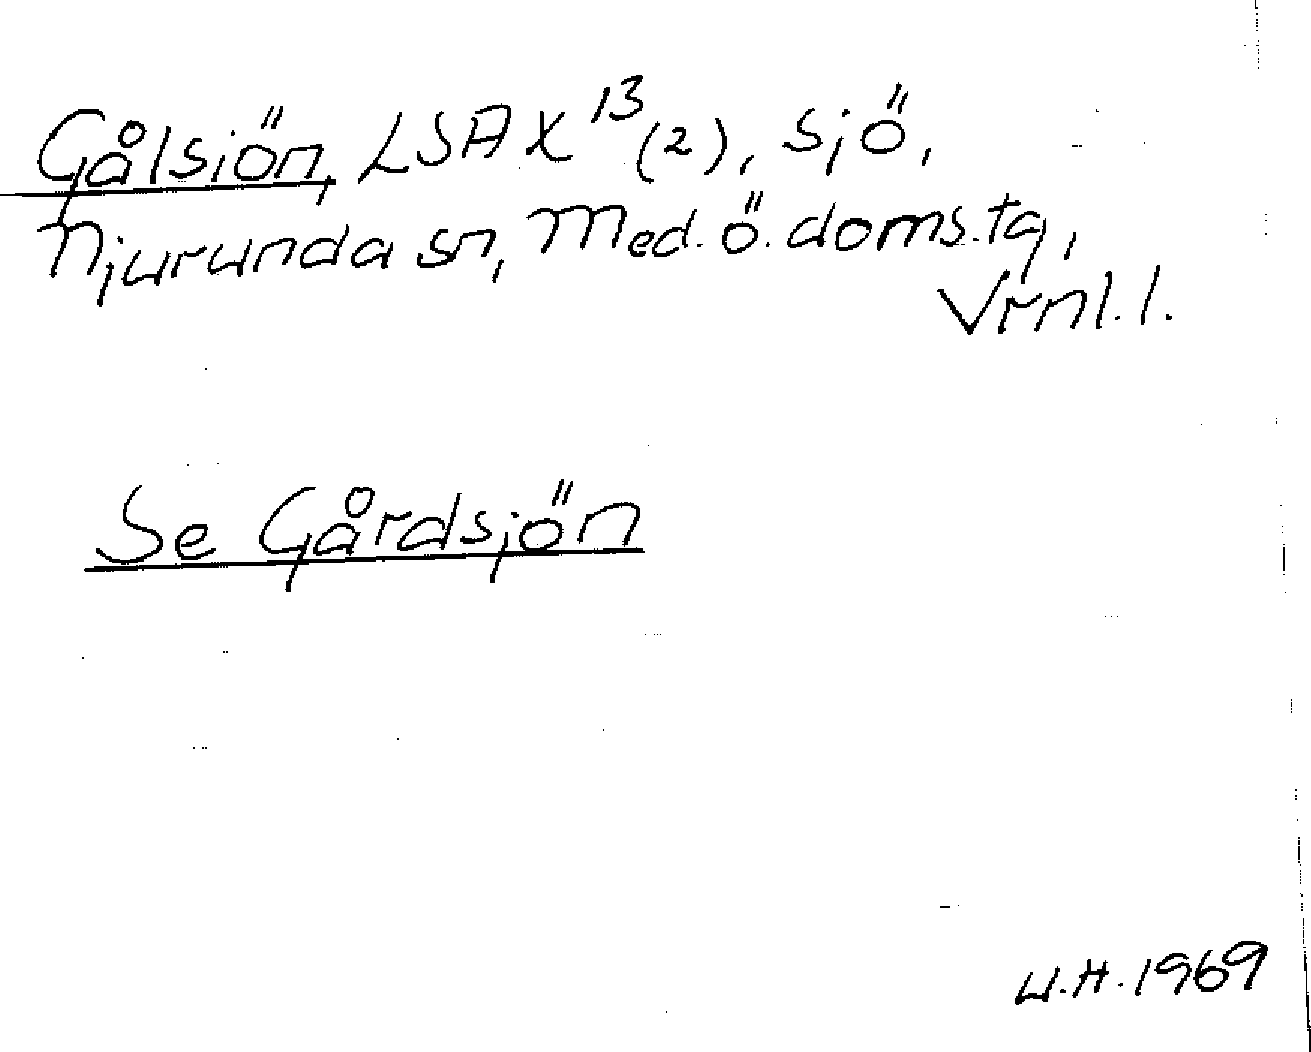 Gålsiön, LSA X 13 (2), sjö,
Njurunda sn, Med. ö. doms.tg,
Vrnl. l.
Se Gårdsjön
U.H. 1969